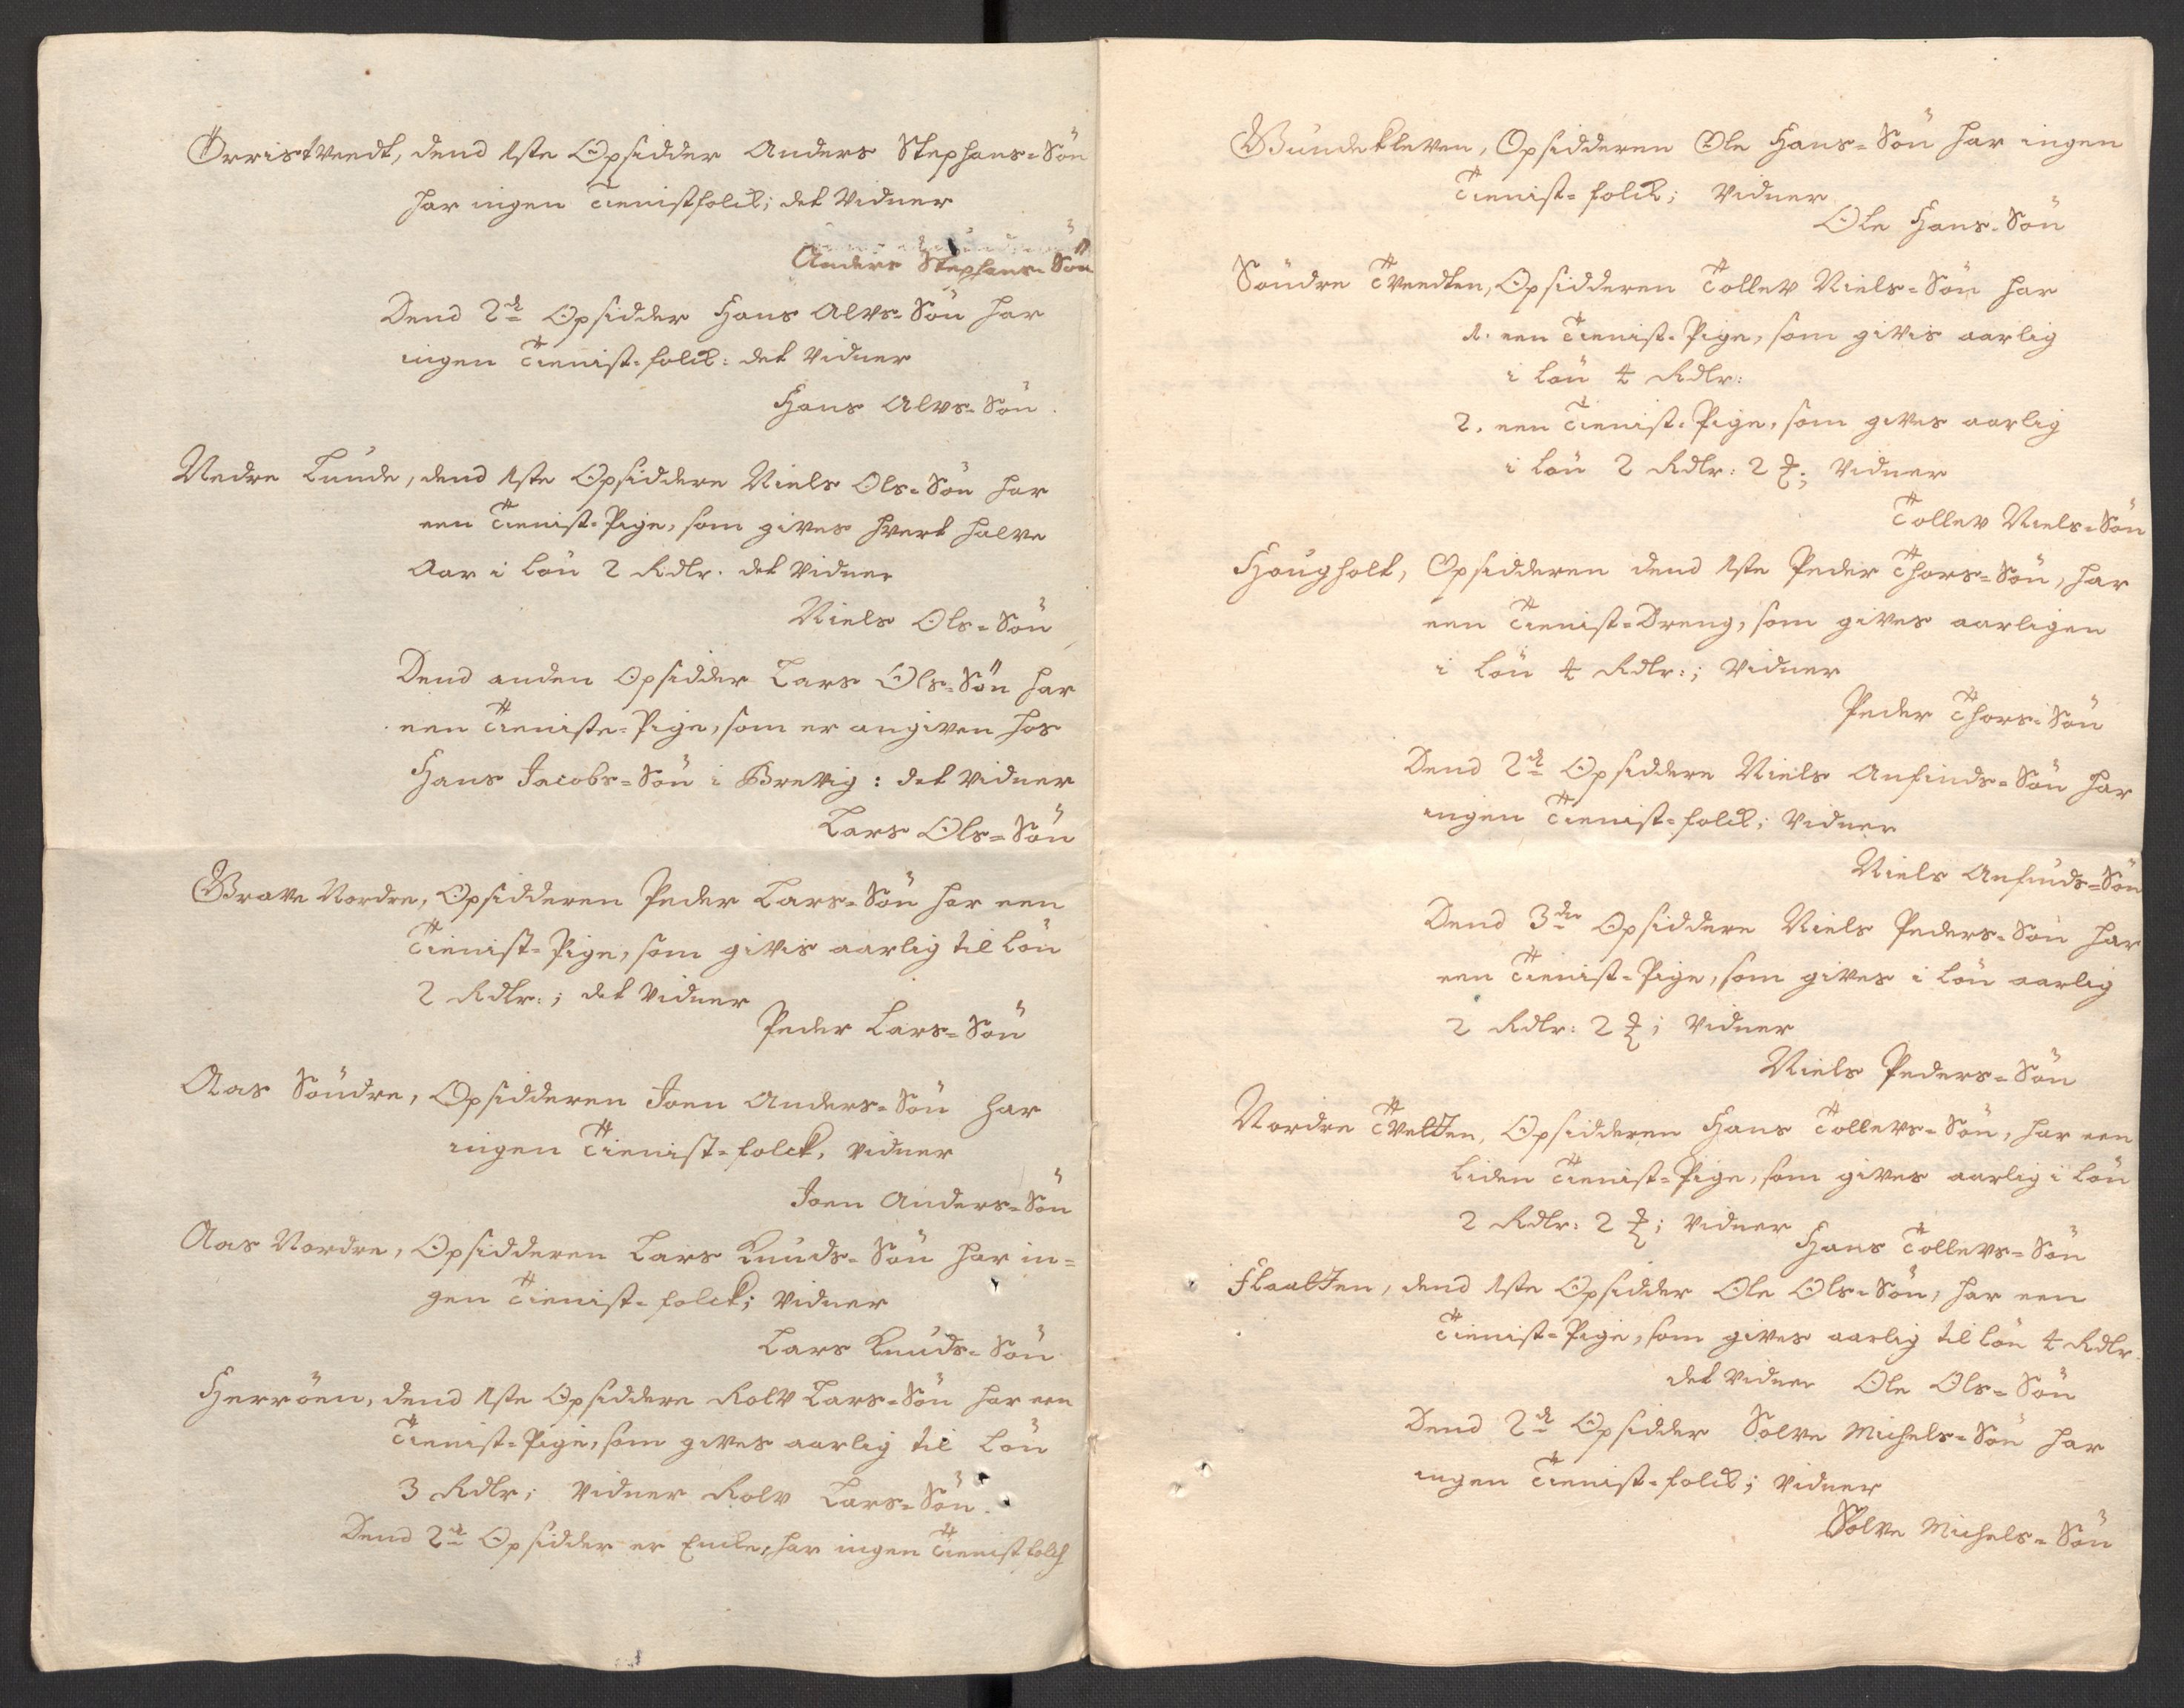 Örristvendt, dend 1ste Opsidder Anders Stephens=Sön
har ingen Tienistfolck; det Vidner
Anders Stephens=Sön
Dend 2de Opsidder Hans Alvs=Sön har
ingen Tienist=folck: det Vidner
Hans Alvs=Sön.
Nedre Lunde, dend 1ste Opsiddere Niels Ols=Sön har
een Tienist=Pige, som gives hvert halve
Aar i Lön 2 Rdlr. det Vidner
Niels Ols=Sön
Dend anden Opsidder Lars Ols=Sön har
een Tieniste=Pige, som er angiven hos
Hans Jacobs=Sön i Brevig: det Vidner
Lars Ols=Sön
Grava Nordre, Opsidderen Peder Lars=Sön har een
Tienist=Pige, som givis aarlig til Lön
2 Rdlr:; det Vidner
Peder Lars=Sön
Aas Söndre, Opsidderen Joen Anders=Sön har
ingen Tienist=folck, Vidner
Joen Anders=Sön
Aas Nordre, Opsidderen Lars Knuds=Sön har in=
gen Tienist=folck; Vidner
Lars Knuds=Sön
Herröen, dend 1ste Opsiddere Rolv Lars=Sön har een
Tienist=Pige, som gives aarlig til Lön
3 Rdlr; Vidner Rolv Lars=Sön.
Dend 2de Opsidder er Encke, har ingen Tienistfolch
Gundekleven, Opsidderen Ole Hans=Sön har ingen
Tienist=folck; Vidner
Ole Hans=Sön
Söndre Tvendten, Opsidderen Tollev Niels=Sön har
1. een Tienist=Pige, som givis aarlig
i Lön 4 Rdlr:
2. een Tienist=Pige, som gives aarlig
i Lön 2 Rdlr: 2 ; Vidner
Tollev Niels=Sön
Hougholt, Opsidderen dend 1ste Peder Thors=Sön, har
een Tienist=Dreng, som gives aarligen
i Lön 4 Rdlr:; Vidner
Peder Thors=Sön
Dend 2de Opsiddere Niels Anfinds=Sön har
ingen Tienist=folck; Vidner
Niels Anfinds=Sön
Dend 3die Opsiddere Niels Peders=Sön har
een Tienist=Pige, som gives i Lön aarlig
2 Rdlr: 2 ; Vidner
Niels Peders=Sön
Nordre Tvetten, Opsidderen Hans Tollevs=Sön, har een
liden Tienist=Pige, som gives aarlig i Lön
2 Rdlr: 2 ; Vidner
Hans Tollevs=Sön
Flaatten, dend 1ste Opsidder Ole Ols=Sön, har een
Tienist=Pige, som gives aarlig til Lön 4 Rdlr.
det Vidner Ole Ols=Sön
Dend 2de Opsidder Solve Michels=Sön har
ingen Tienist=folck; Vidner
Solve Michels=Sön